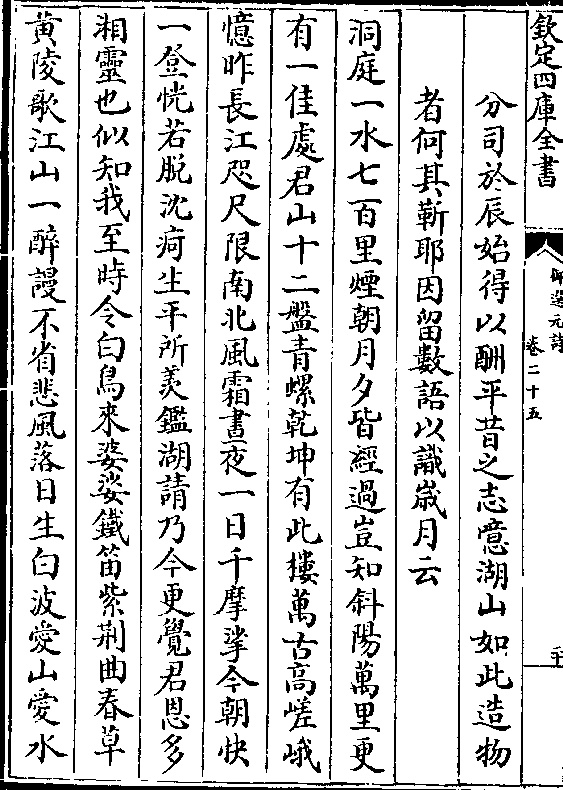 欽定四庫全書
御選元詩
卷二十五
二十
分司於辰始得以酬平昔之志噫湖山如此造物
者何其靳耶因留數語以識歲月云
洞庭一水七百里煙朝月夕皆經過豈知斜陽萬里更
有一佳處君山十二盤青螺乾坤有此樓萬古高嵯峨
憶昨長江咫尺限南北風霜晝夜一日千摩挲今朝快
一登恍若脱沈疴生平所羨鑑湖請乃今更覺君恩多
湘靈也似知我至時令白鳥來婆娑鐵笛紫荆曲春草
黄陵歌江山一醉謾不省悲風落日生白波愛山愛水